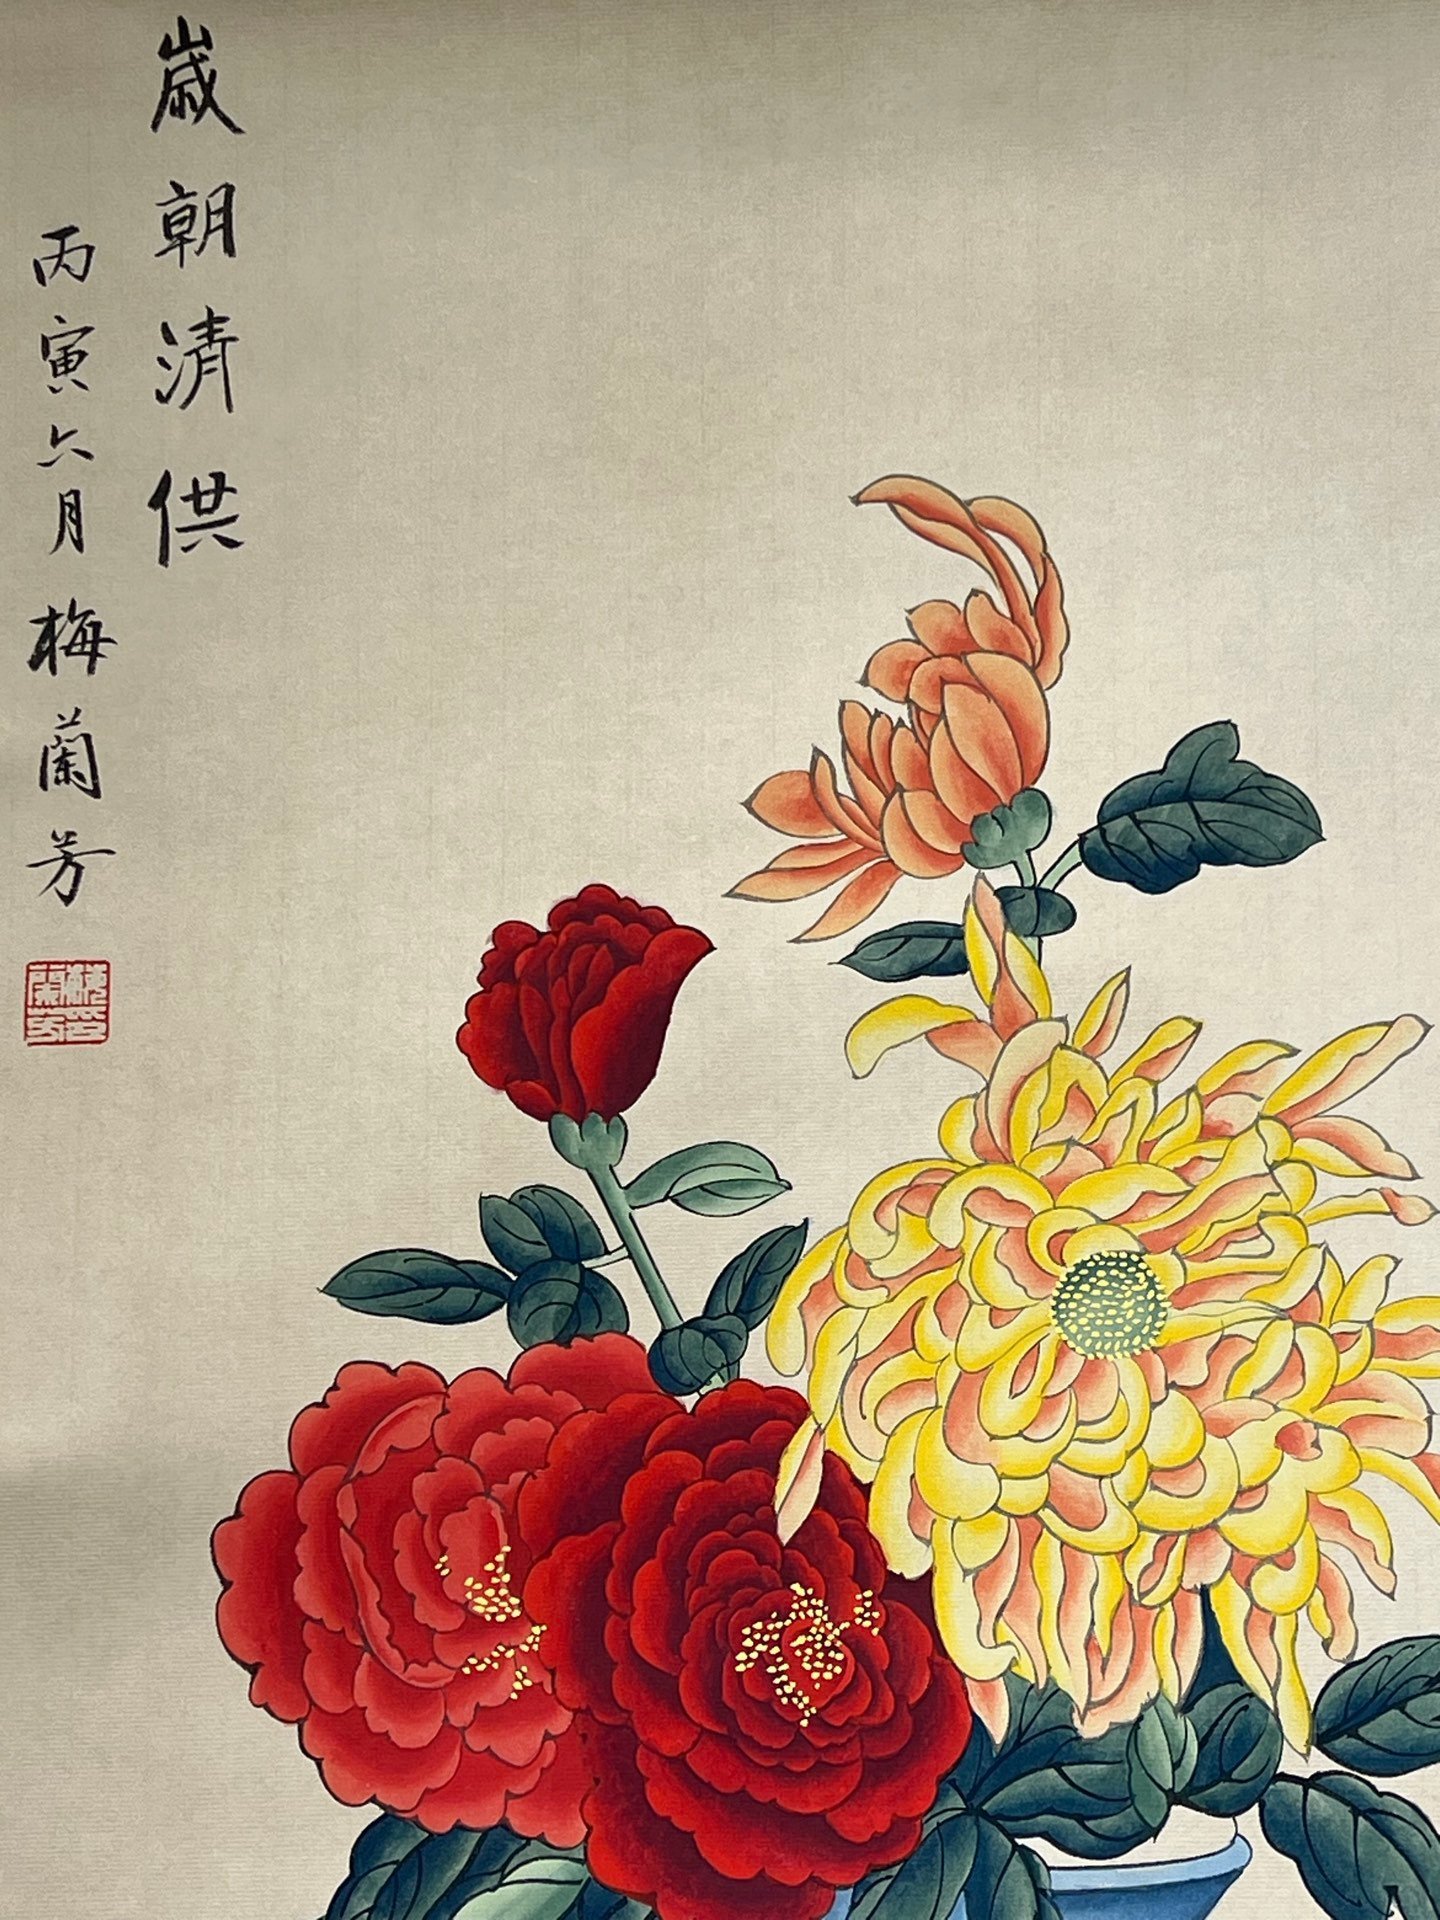 歲朝清供
丙寅六月 梅蘭芳
梅蘭芳印